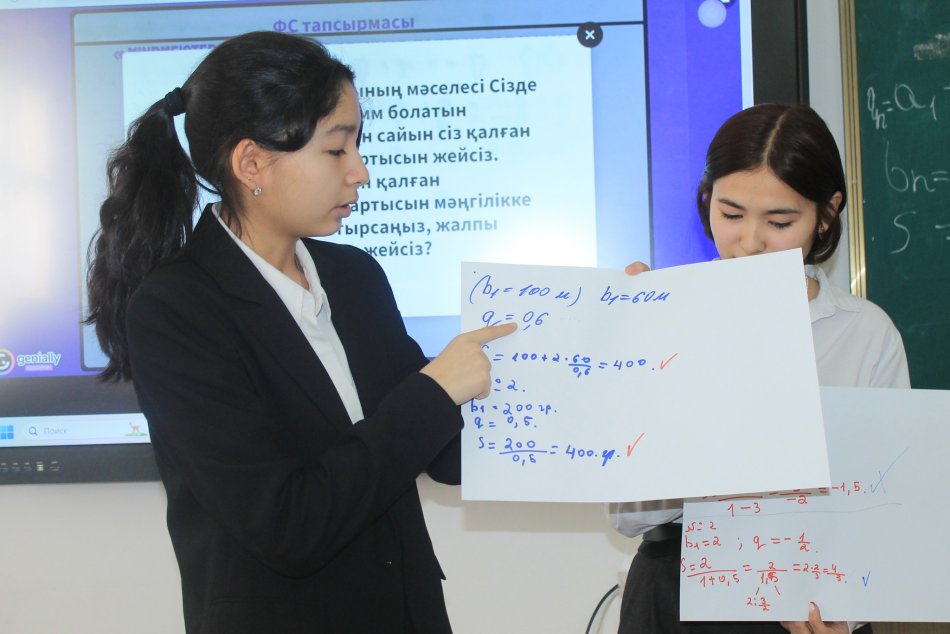 ФС тапсырмасы
ының мәселесі Сізде
мм болатын
н сайын сіз қалған
артысын жейсіз.
н қалған
артысын мәңгілікке
тырсаңыз, жалпы
жейсіз?
genially
Поиск
(b₁ = 100 м) b₁=60м
q = 0,6
= 100 + 2 · 60/0,6 = 400. ✓
2.
b₁ = 200 гр.
q = 0,5.
S = 200/0,5 = 400. гр. ✓
1-3 -2 = -1,5.
№ 2
b₁=2 ; q = -1/2.
S = 2/1+0,5 = 2/1,5 = 2·2/3 = 4/3. ✓
2:3/2
bn=
S =